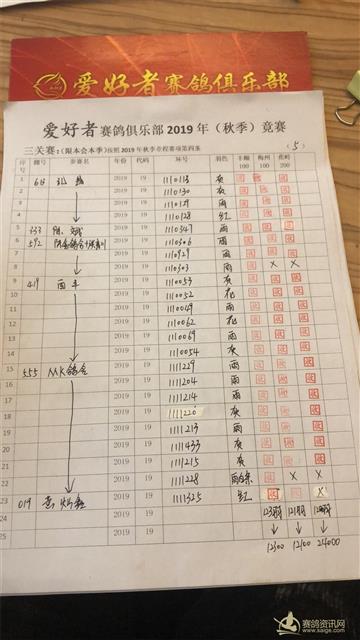 爱好者赛鸽俱乐部
爱好者赛鸽俱乐部 2019 年（秋季）竞赛
三关赛：(限本会本季)按照 2019 年秋季章程赛项第四条 (5)
序号 棚号 参赛名 年份 代码 环号 羽色 丰顺 100 梅州 100 蕉岭 200
1 2019 19 1110113 灰
2 2019 19 1110130 灰
3 2019 19 1110129 雨
4 2019 19 1110128 红
5 333 2019 19 1110347 雨
6 592 2019 19 1110306 雨
7 2019 19 1110929 雨
8 2019 19 1110303 雨 X X
9 419 2019 19 1110053 灰
10 2019 19 1110052 花
11 2019 19 1110049 雨
12 2019 19 1110062 花
13 2019 19 1110069 雨
14 2019 19 1110054 灰
15 555 MK鸽舍 2019 19 1111229 雨
16 2019 19 1111204 雨
17 2019 19 1111214 雨
18 2019 19 1111220 灰
19 2019 19 1111213 雨
20 2019 19 1111433 灰
21 2019 19 1111215 灰
22 2019 19 1111228 X X
23 019 2019 19 1111325 红 X
24 2019 19 123羽 121羽
25 2019 19 12300 12100 24000
赛鸽资讯网
www.saige.com